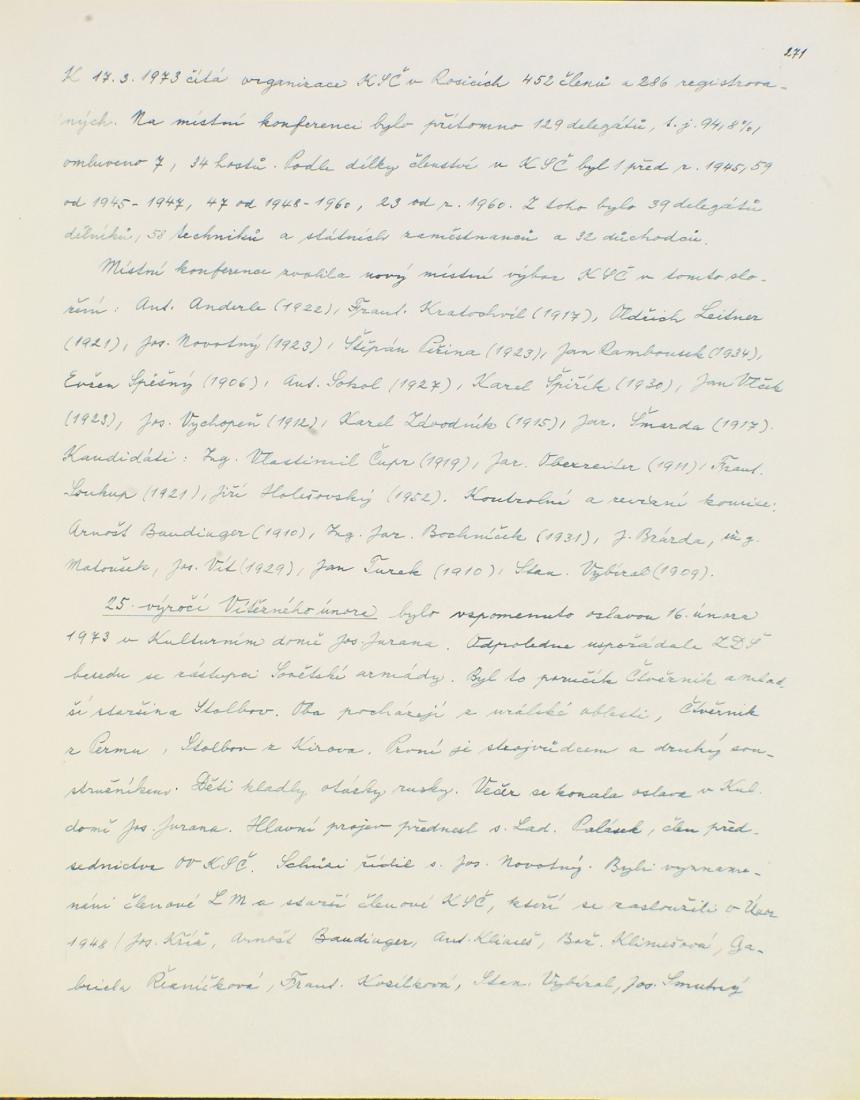 271
K 17.3.1973 čítá organizace KSČ v Rosicích 452 členů a 286 registrova-
ných. Na místní konferenci bylo přítomno 129 delegátů, t.j. 94,8%,
omluveno 7, 34 hostů. Podle délky členství v KSČ byl 1 před r. 1945, 59
od 1945-1947, 47 od 1948-1960, 23 od r. 1960. Z toho bylo 39 delegátů
dělníků, 58 techniků a státních zaměstnanců a 32 důchodců.
Místní konference zvolila nový místní výbor KSČ v tomto slo-
žení: Ant. Anderle (1922), Frant. Kratochvíl (1917), Oldřich Leitner
(1921), Jos. Novotný (1923), Štěpán Peřina (1923), Jan Rambousek (1934),
Evžen Spěšný (1906), Ant. Sokol (1927), Karel Špiřík (1930), Jan Vlček
(1923), Jos. Vychopeň (1912), Karel Závodník (1915), Jar. Šmarda (1917).
Kandidáti: Ing. Vlastimil Čupr (1919), Jar. Oberreiter (1911), Frant.
Soukup (1921), Jiří Holešovský (1952). Kontrolní a revizní komise:
Arnošt Baudinger (1910), Ing. Jar. Bochníček (1931), J. Brárda, ing.
Matoušek, Jos. Vít (1929), Jan Turek (1910), Stan. Vybíral (1909).
25. výročí Vítězného února bylo vspomenuto oslavou 16. února
1973 v Kulturním domě Jos. Jurana. Odpoledne uspořádala ZDŠ
besedu se zástupci Sovětské armády. Byl to poručík Čtvěrnik a mlad
ší staršina Stolbov. Oba pocházejí z uralské oblasti, Čtvěrnik
z Permu, Stolbov z Kirova. První je strojvůdcem a druhý sou-
stružníkem. Děti kladly otázky rusky. Večer se konala oslava v Kul.
domě Jos. Jurana. Hlavní projev přednesl s. Lad. Palásek, člen před-
sednictva OV KSČ. Schůzi řídil s. Jos. Novotný. Byli vyzname-
náni členové LM a starší členové KSČ, kteří se zasloužili o Únor
1948 / Jos. Kříž, Arnošt Baudinger, Ant. Klimeš, Bož. Klimešová, Ga-
briela Řezníčková, Frant. Kosílková, Stan. Vybíral, Jos. Smutný